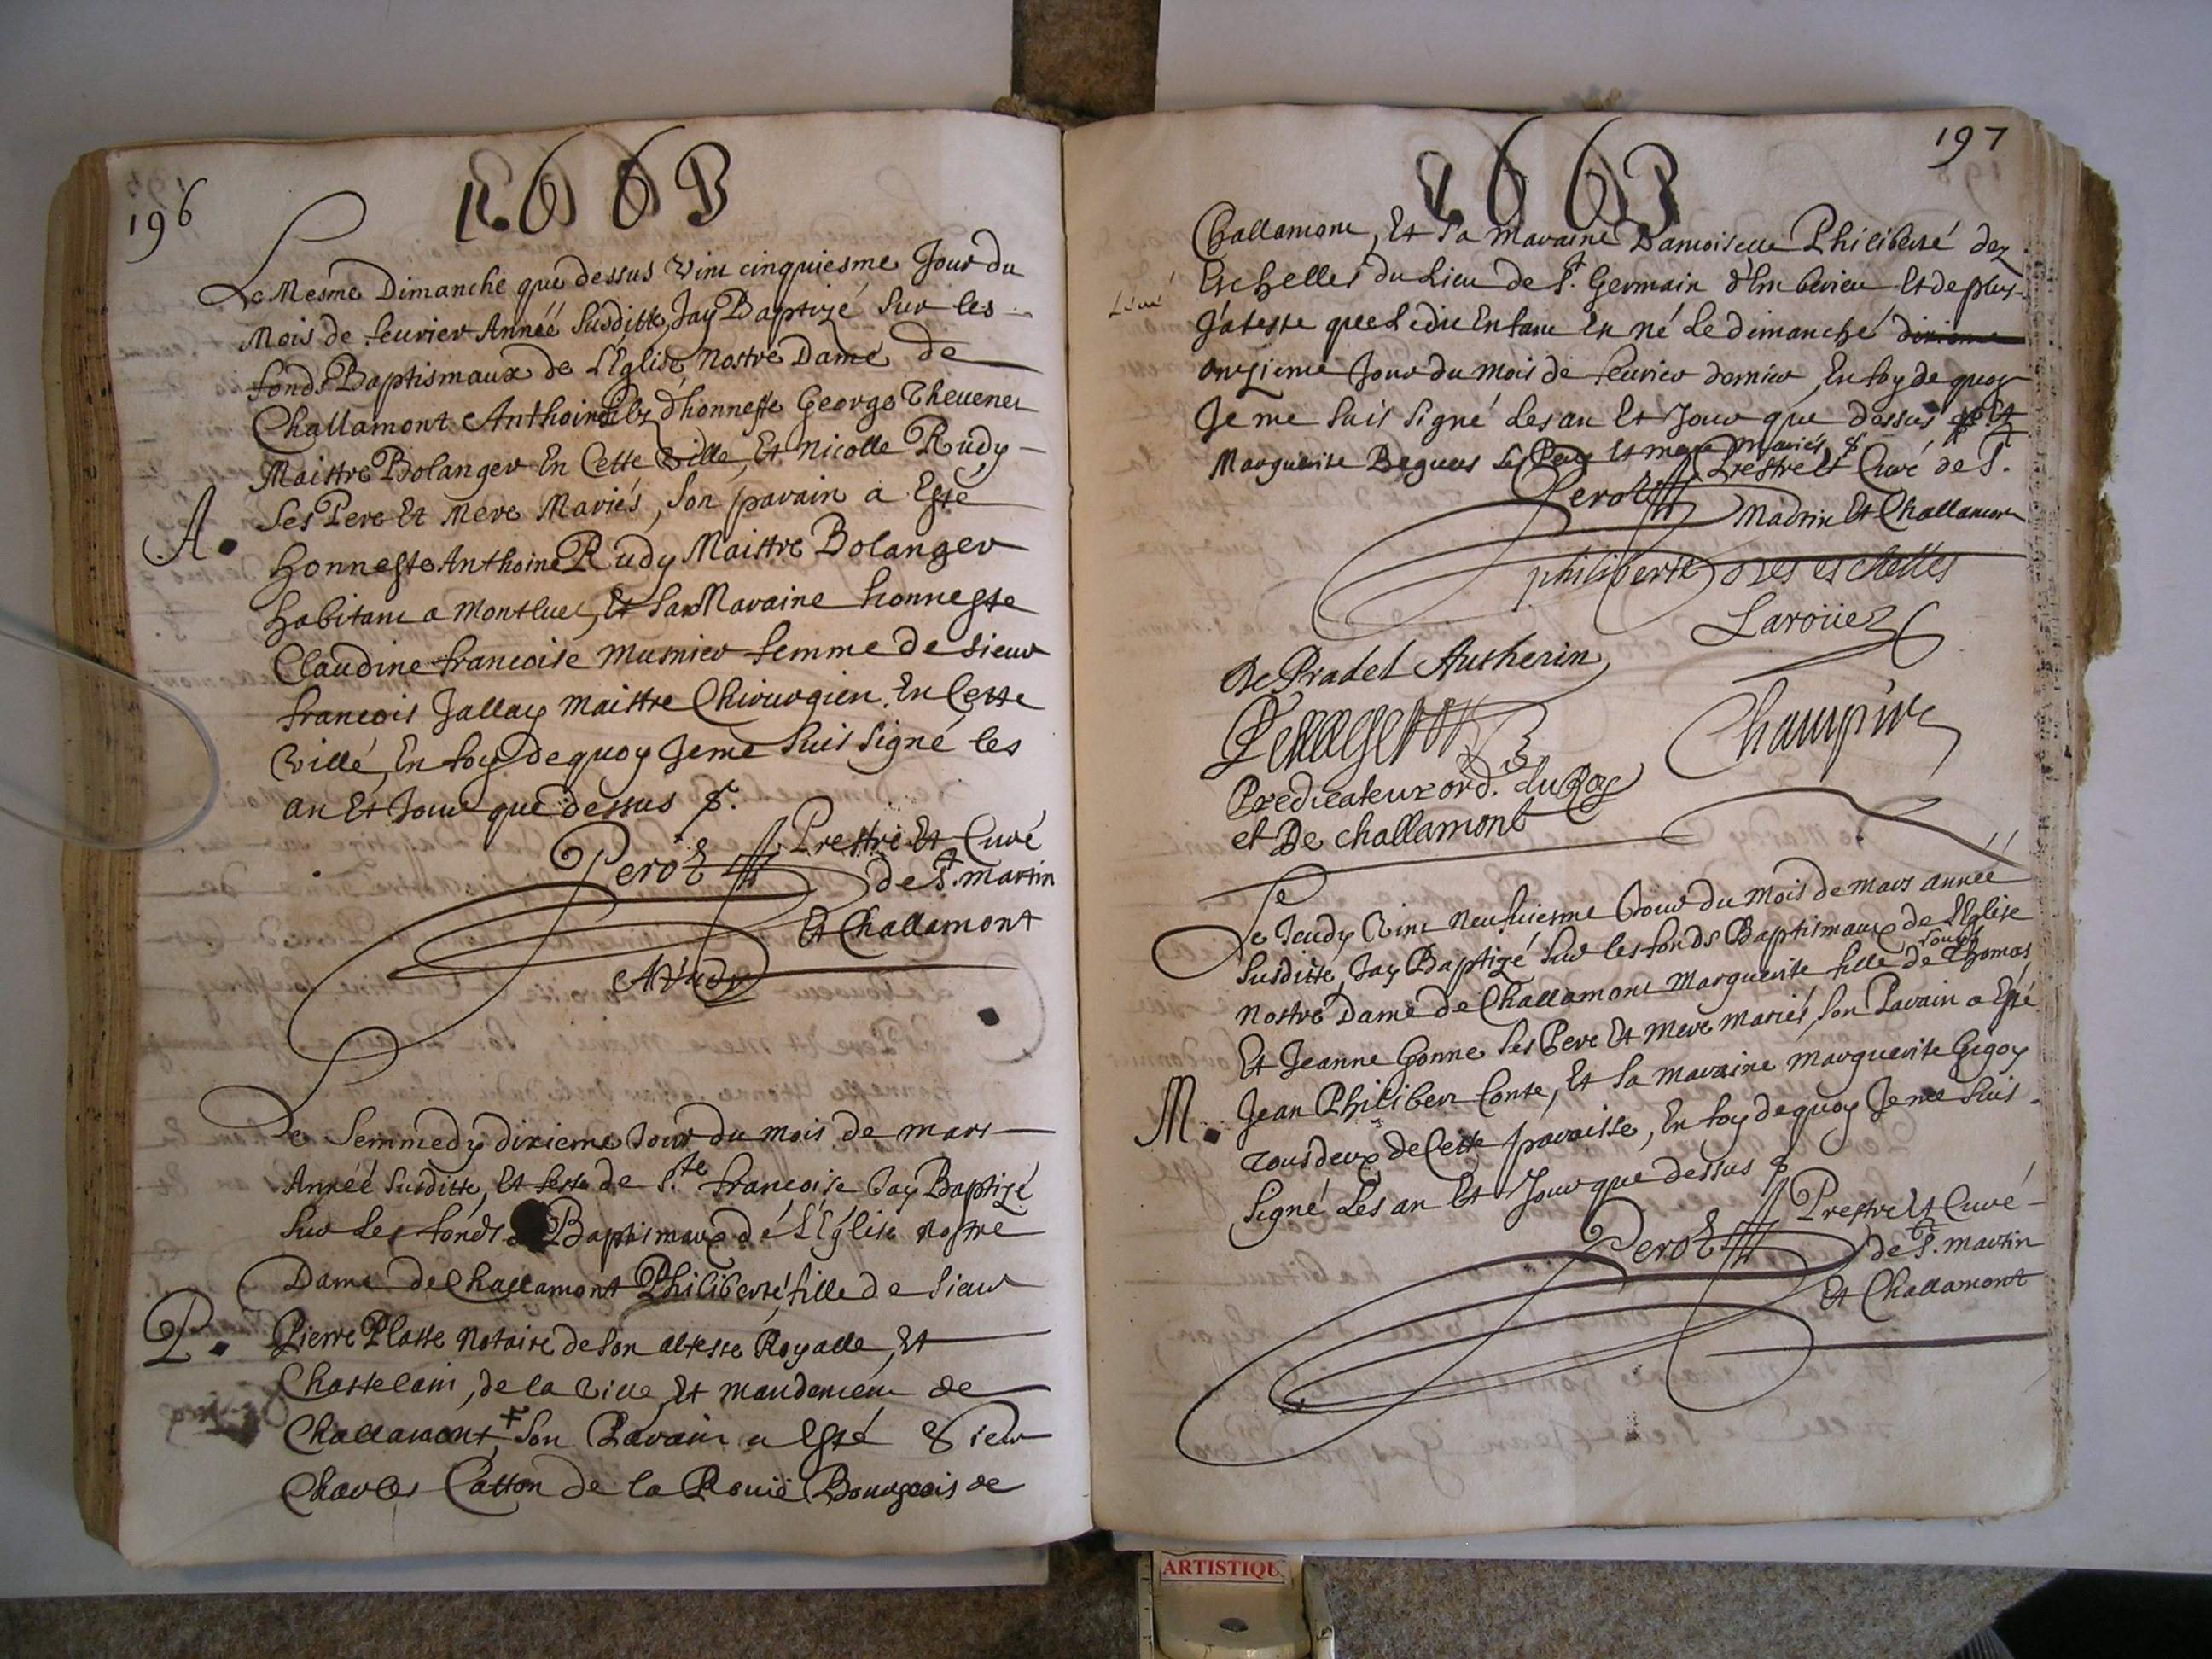 196
1663
Le Mesme Dimanche que dessus vint cinquiesme Jour du
Mois de feurier Année susditte, Jay Baptizé sur les
fonds Baptismaux de L'Eglise Nostre Dame de
Challamont Anthoine filz d'honneste George Theuenet
Maistre Bolanger En Cette Ville, Et Nicolle Rudy
Ses Pere Et Mere Mariés, son parain a Esté
A.
honneste Anthoine Rudy Maistre Bolanger
habitant a Montluel, Et sa Maraine honneste
Claudine francoise musnier femme de sieur
francois Jallay maistre Chirurgien En Cette
Ville, En foy de quoy Je me suis signé les
an Et Jour que dessus
Perot Prestre Et Curé
de St. martin
Et Challamont
ARudy
Le Semmedy dixieme Jour du mois de mars
Année susditte, Et feste de Ste francoise Jay Baptizé
sur les fonds Baptismaux de L'Eglise Nostre
Dame de Challamont Philiberte fille de sieur
P.
Pierre Platte Notaire de son altesse Royalle, Et
Chastelain, de la Ville Et mandement de
Challamont, son Parain a Esté Sieur
Charles Catton de la Rouië Bourgeois de
197
1663
Challamont, Et sa maraine Damoiselle Philiberte dez
Eschelles du Lieu de St. Germain d'Emberieu Et de plus
J'ateste que Ledit Enfant Et né Le dimanche dixieme
onzieme Jour du mois de feurier dernier, En foy de quoy
Je me suis signé Les an Et Jour que dessus Et
Marguerite Beguet ses Pere Et mere mariés
Perot Prestre Et Curé de St.
Martin Et Challamont
philiberte des eschelles
Laroüe
De Pradel Autherin
Champier
Predicateur ord. du Roy
et De challamont
Le Jeudy Vint Neufuiesme Jour du mois de mars année
susditte, Jay Baptizé sur les fonds Baptismaux de L'Eglise
Nostre Dame de Challamont Marguerite fille de Thomas
Et Jeanne Gonne ses Pere Et Mere mariés, son Parain a Esté
M.
Jean Philibert Conte, Et sa maraine marguerite Gigoy
tous deux de Cette paroisse, En foy de quoy Je me suis
signé Les an Et Jour que dessus
Perot Prestre Et Curé
de St. martin
Et Challamont
ARTISTIQU